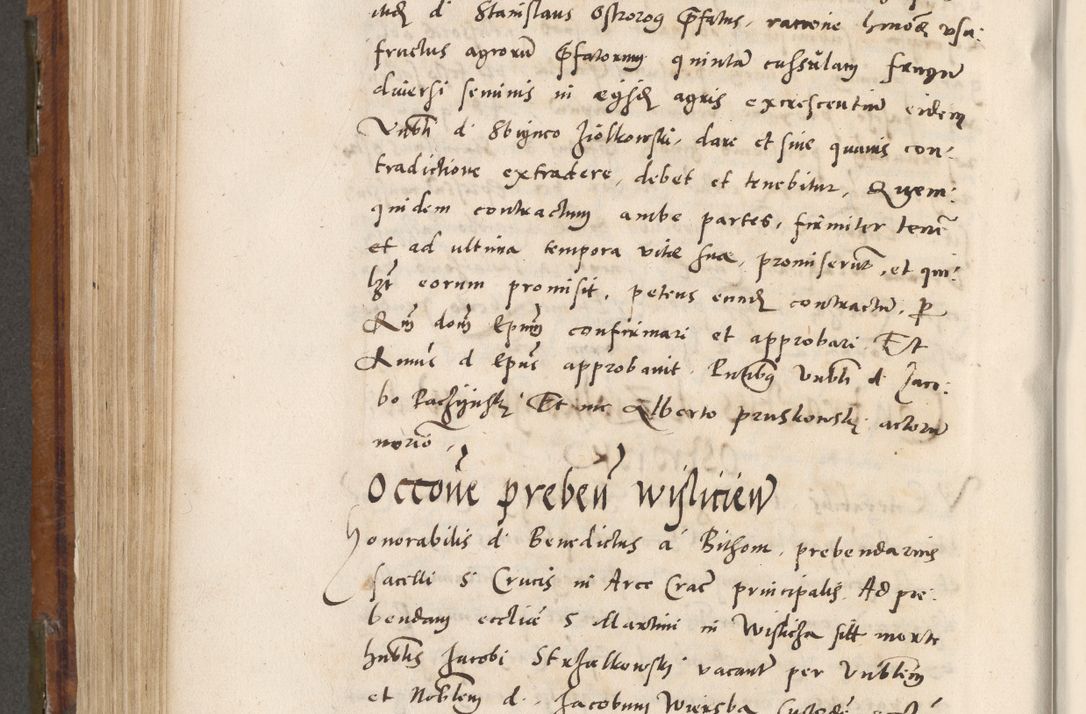 itidē d Stanislaus Ostrorog p̄fatus, ratione hmōi usu:
fructus agrorū p̄fatorum quintā cassulam frugū
diversi seminis in eisdē agris excrescentiū eidem
Vnbli d Sbigneo Ziolkowski, dare et sine quavis con:
tradictione extradere, debet et tenebitur, Quem:
quidem contractum ambe partes, firmiter tenere
et ad ultima tempora vitæ suæ, promiserūt, et qui:
lbt eorum promisit, petens eundē contractū, p
Rm̄ dom̄ Epūm confirmari et approbari. Et
Rmus d Epus approbavit. Pn̄tibus Vnbli d Jaco:
bo Paczijnski Et me Alberto Pruskowski actorū
notō.
Occōne prebeñ Wislicień
Honorabilis d Benedictus a Bithom, prebendarius
sacelli S Crucis in Arce Crac̄ principalis. Ad pre:
bendam eccliæ S Martini in Wislicza sitt morte
hnblis Jacobi Strzalkowski vacanť per Vnblem
et Noblem d. Jacobum Wiersba